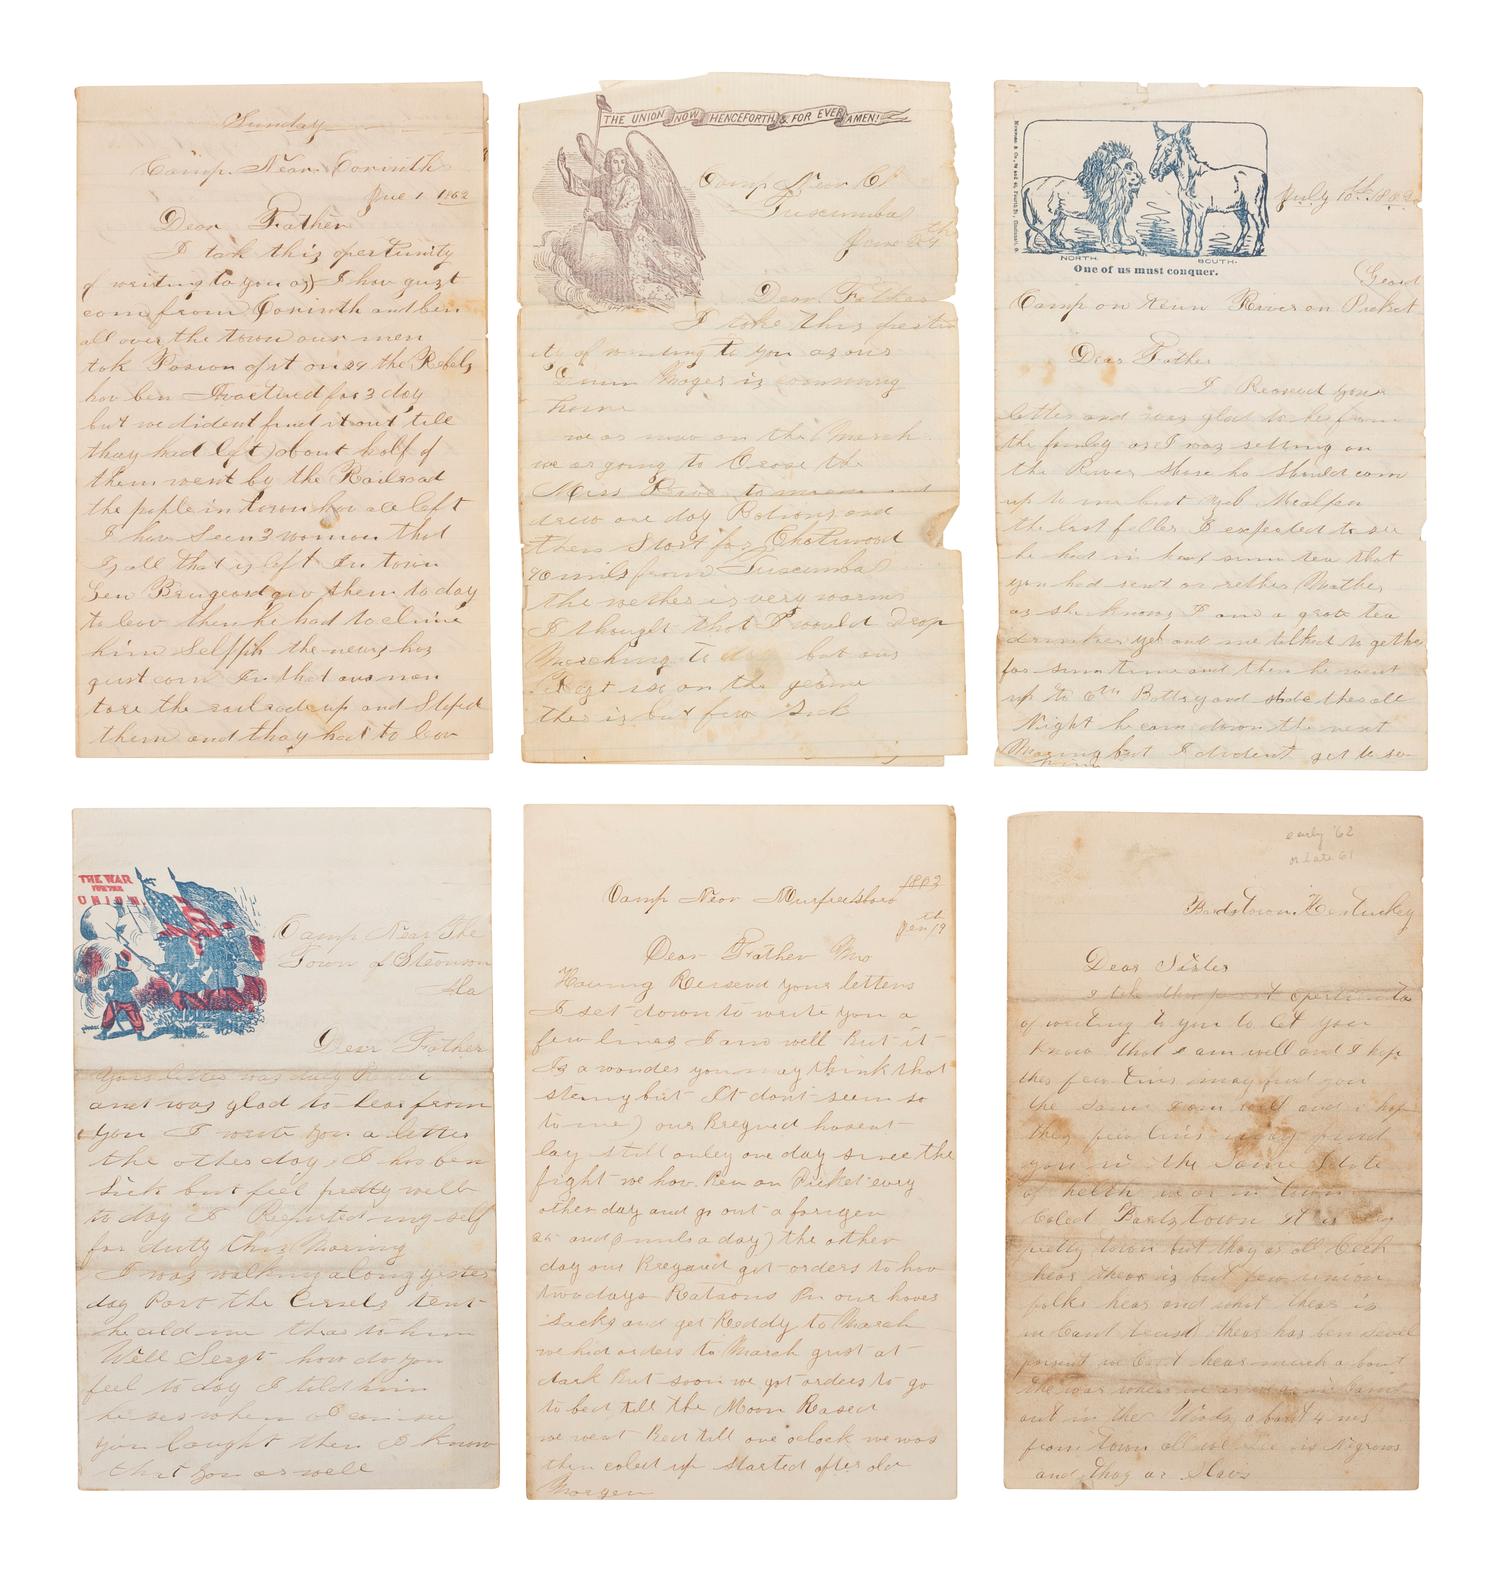 Sunday
Camp Near Corinth
June 1 1862
Dear Father
I tak this opertunity
of writing to you as I hav gust
com from Corinth and ben
all over the town our men
tok Posion of it on 29 the Rebels
hav ben Evactued for 3 day
but we dident find it out tell
thay had left about half of
them went by the Railroad
the pople in town hav all left
I hav Seen 3 womon that
is all that is left In town
Gen Beugeard giv them to day
to leav then he had to clime
him Selfph the news has
gust com In that our men
tore the railrode up and Stoped
them and thay had to leav
THE UNION NOW HENCEFORTH & FOR EVER AMEN!
Camp Near
Tuscumba
June 24th
Dear Father
I take this opertun
ity of writing to you as our
Mager is comming
home
we ar now on the March
we ar going to Crose the
Miss River and
drew one day Rations and
then Start for
miles from Tuscumba
the wether is very warm
I thought that I would Drop
Marching to day but our
Regt is on the
ther is but few Sick
NORTH.
SOUTH.
One of us must conquer.
July 10th 1862
Camp on Tenn River on Picket
Geard
Dear Father
I Receved your
letter and was glad to he from
the family as I was setting on
the River Shore ho Should com
up to me but
the last feller I expected to see
he had in his sum tea that
you had sent or rether Mother
as she knows I am a grate tea
drinker yet and we talked to gether
for sum time and then he went
up to 6th Battry and stade thar all
Night he cam down the next
Moring but I dident get to se
him
THE WAR
FOR THE
UNION.
Camp Near the
Town of Stevenson
Ala
Dear Father
Your letter was duly
and was glad to hear from
you I wrote you a letter
the other day I has ben
Sick but feel pretty well
to day I Reported my self
for duty this Moring
I was walking along yester
day Part the Cornels tent
he cald me thar to him
Well Sergt how do you
feel to day I told him
he ses when I can see
you laught then I know
that you ar well
Camp Near Murfresboro
1863
Jen 19th
Dear Father
Having Receved your letters
I set down to write you a
few lines I am well But it
Is a wonder you may think that
stemy but It dont seem so
to me) our Bregned havent
lay still onley one day since the
fight we hav Ben on Picket every
other day and go out a forigen
and miles a day) the other
day our Bregard got orders to hav
two days Ratsons In our haver
sacks and get Reddy to March
we had orders to March gust at
dark But soon we got orders to go
to bed till the Moon Rased
we went Bed till one oclock we was
then coled up started after old
Morgen
early '62
or late 61
Bardstown Kentuckey
Dear Sister
I take this opertunity
of writing to you to let you
know that I am well and I hop
thes few lins may find you
the same I am well and i hop
thes few lins may find
you in the same State
of helth we ar in town
Coled Bardstown it is
pretty town but thay ar all Cech
hear thear is but few union
folks hear and what thear is
we Cant trust thear has ben sevel
we Cant hear much a bout
the war where we ar
out in the Woods about 4 mls
from town all we see is Negrows
and thay ar Slavs